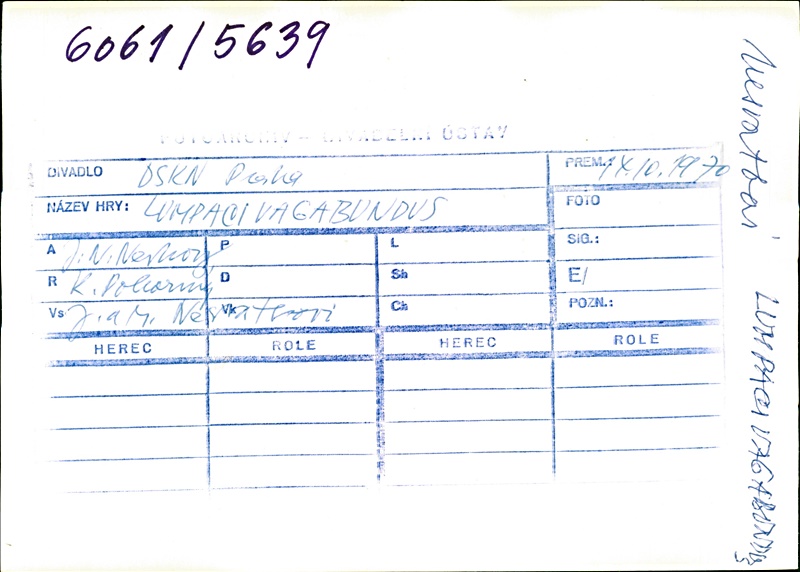 6061/5639
FOTOARCHIV – DIVADELNÍ ÚSTAV
DIVADLO DSKN Praha
PREM.: 14.10.1970
NÁZEV HRY: LUMPACIVAGABUNDUS
FOTO
A J. N. Nestroy P L
SIG.:
R K. Pokorný D Sh
E/
Vs J. a M. Nesvatbovi Vk Ch
POZN.:
HEREC ROLE HEREC ROLE
LUMPACIVAGABUNDUS